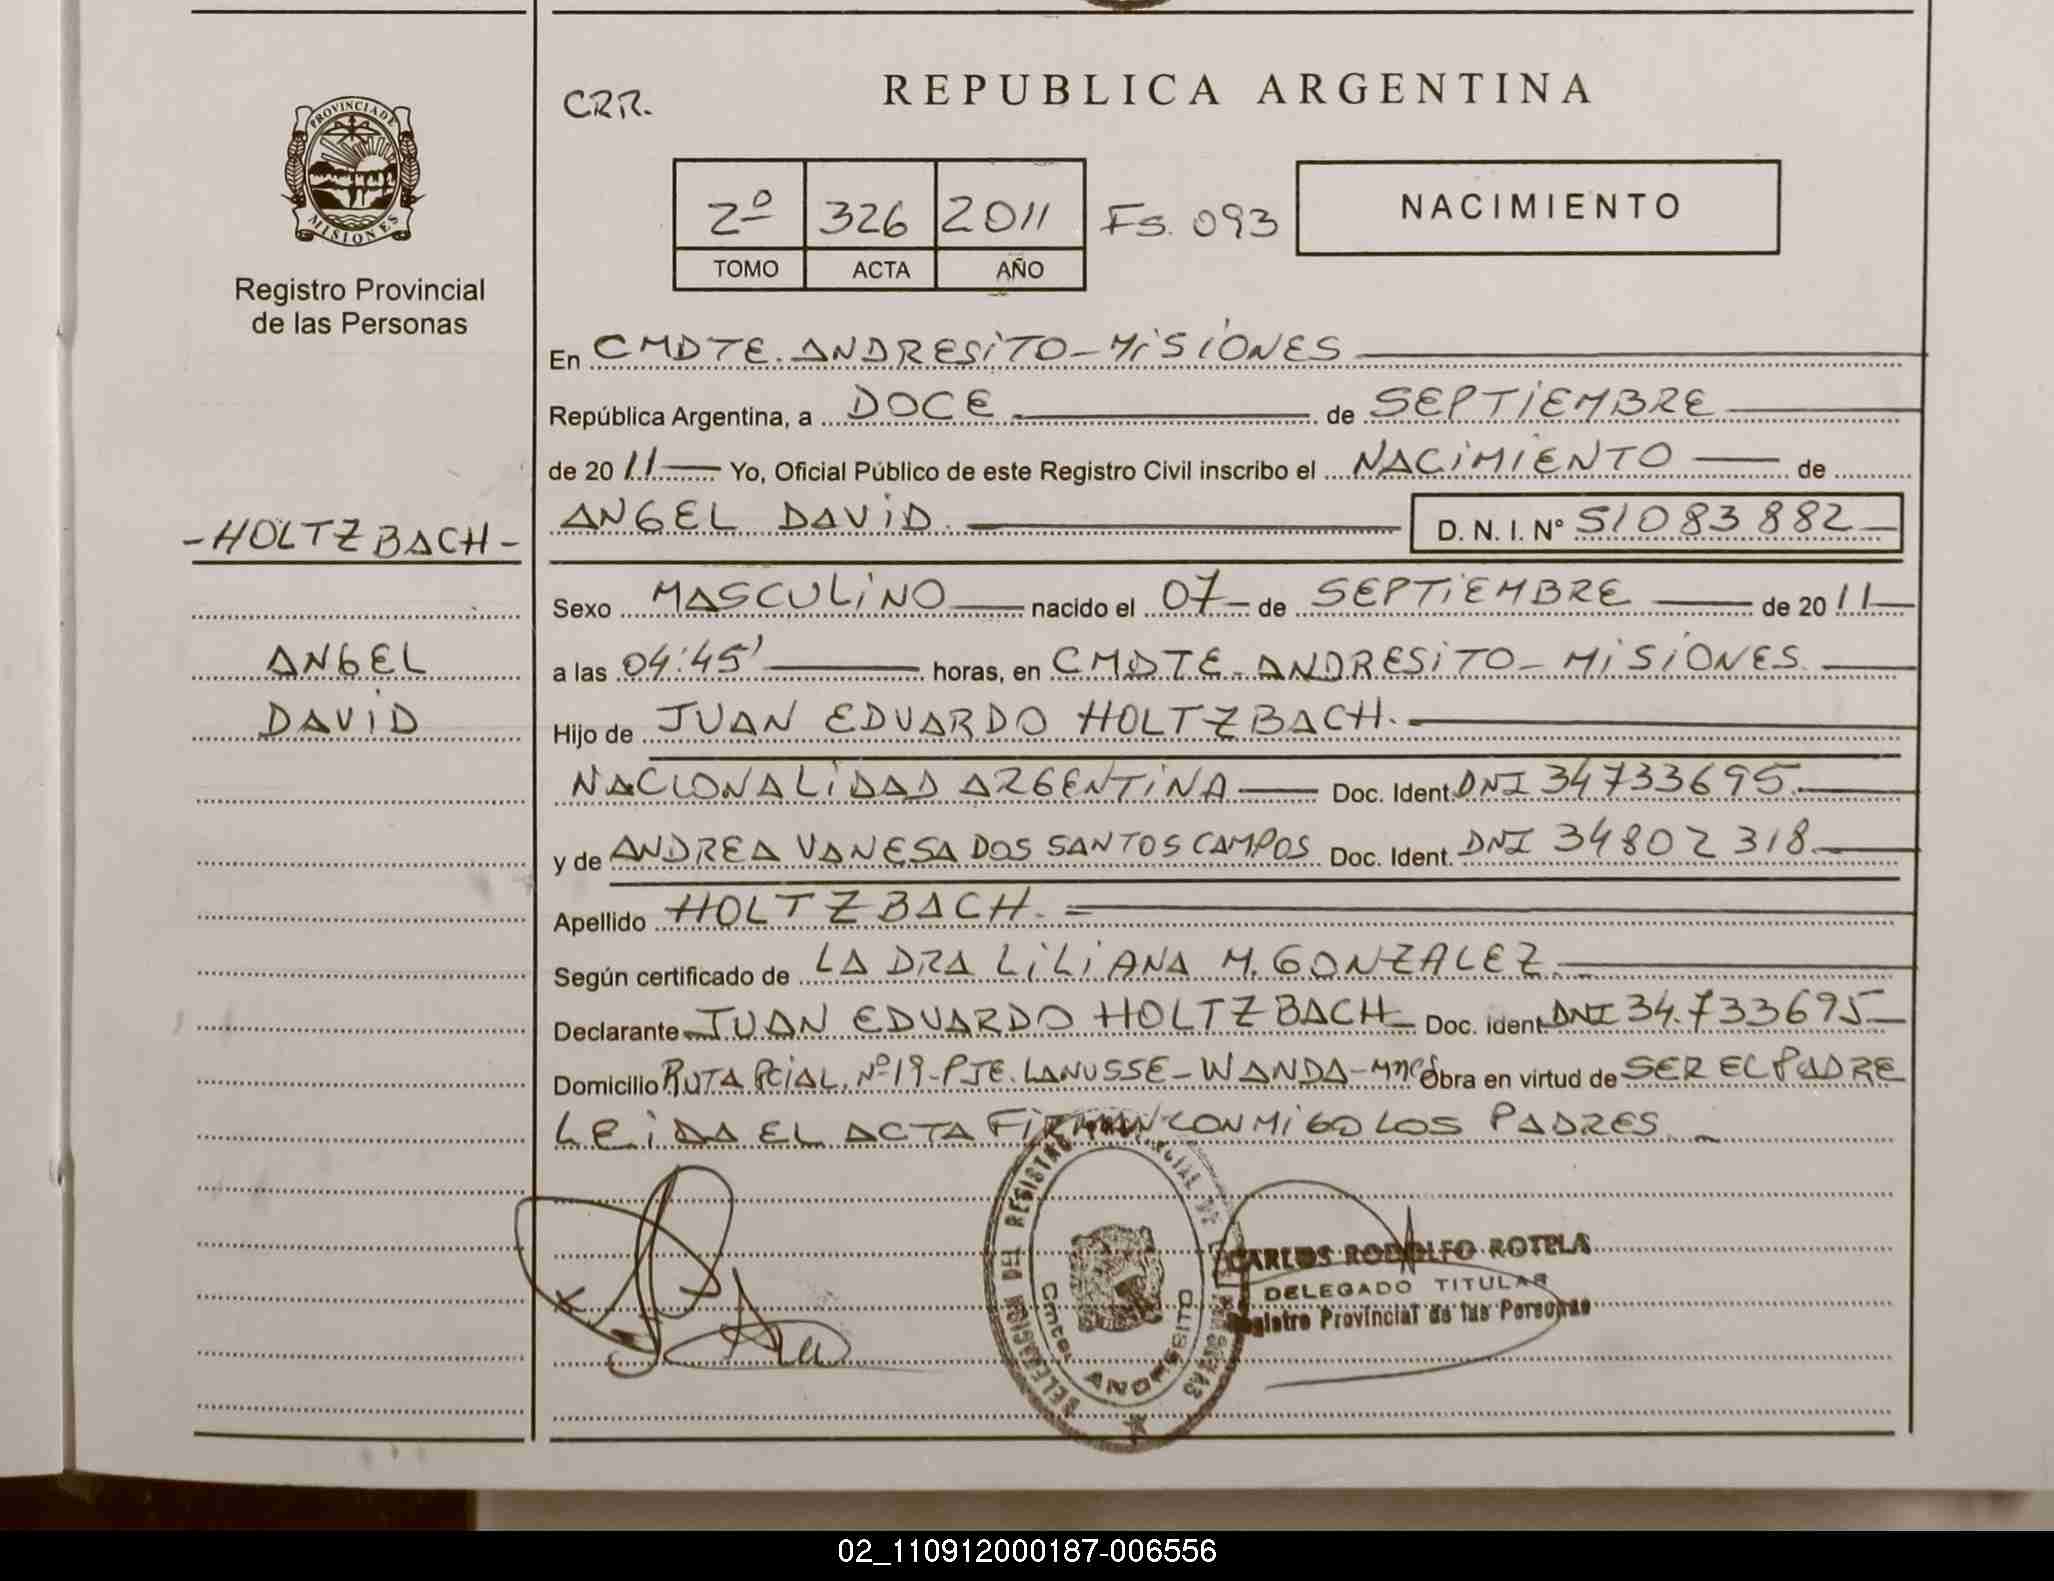 REPUBLICA ARGENTINA
CRR.
PROVINCIA DE MISIONES
Registro Provincial
de las Personas
2º 326 2011 Fs. 093
TOMO ACTA AÑO
NACIMIENTO
En CMDTE. ANDRESITO - MISIONES
República Argentina, a DOCE de SEPTIEMBRE
de 2011 Yo, Oficial Público de este Registro Civil inscribo el NACIMIENTO de
ANGEL DAVID D. N. I. Nº 51083882
-HOLTZBACH-
ANGEL
DAVID
Sexo MASCULINO nacido el 07 de SEPTIEMBRE de 2011
a las 04:45' horas, en CMDTE. ANDRESITO - MISIONES.
Hijo de JUAN EDUARDO HOLTZBACH.
NACIONALIDAD ARGENTINA Doc. Ident. DNI 34733695.
y de ANDREA VANESA DOS SANTOS CAMPOS Doc. Ident. DNI 34802318.
Apellido HOLTZBACH.
Según certificado de LA DRA LILIANA M. GONZALEZ.
Declarante JUAN EDUARDO HOLTZBACH Doc. ident. DNI 34.733695
Domicilio RUTA PCIAL. Nº 19 - PJE. LANUSSE - WANDA - Obra en virtud de SER EL PADRE
LEIDA EL ACTA FIRMAN CONMIGO LOS PADRES.
DELEGACION DEL REGISTRO PROVINCIAL DE LAS PERSONAS
Cmte. ANDRESITO
CARLOS RODOLFO ROTELA
DELEGADO TITULAR
Registro Provincial de las Personas
02_110912000187-006556